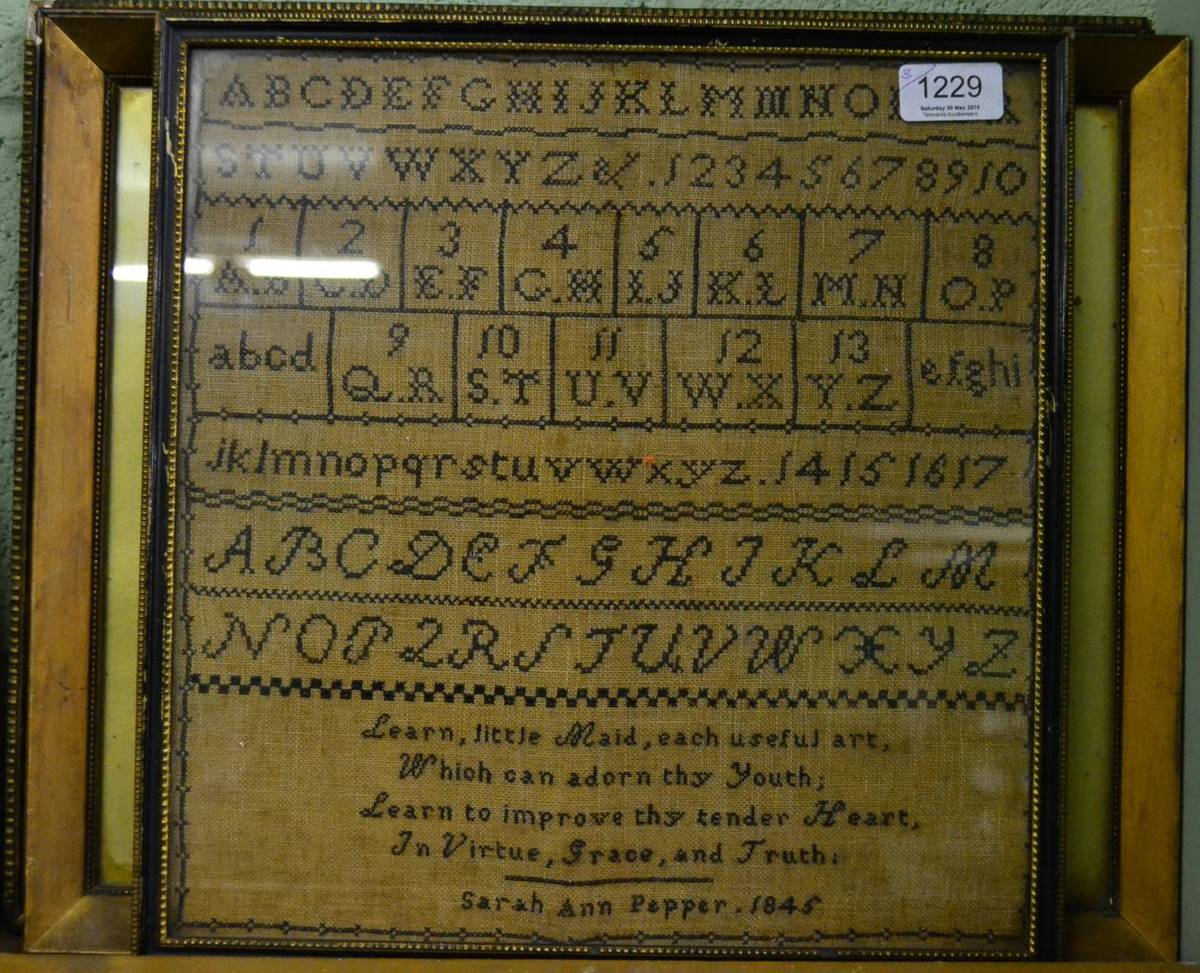 ABCDEFGHIJKLMMNO
R
3
1229
Saturday 30 May 2015
Tennants Auctioneers
STUVWXYZ&.12345678910
1 2 3 4 5 6 7 8
A.B C.D E.F G.H I.J K.L M.N O.P
abcd 9 10 11 12 13 efghi
Q.R S.T U.V W.X Y.Z
jklmnopqrstuvwxyz.14151617
ABCDEFGHIJKLM
NOPQRSTUVWXYZ
Learn, little Maid, each useful art,
Which can adorn thy Youth;
Learn to improve thy tender Heart,
In Virtue, Grace, and Truth:
Sarah Ann Pepper. 1845